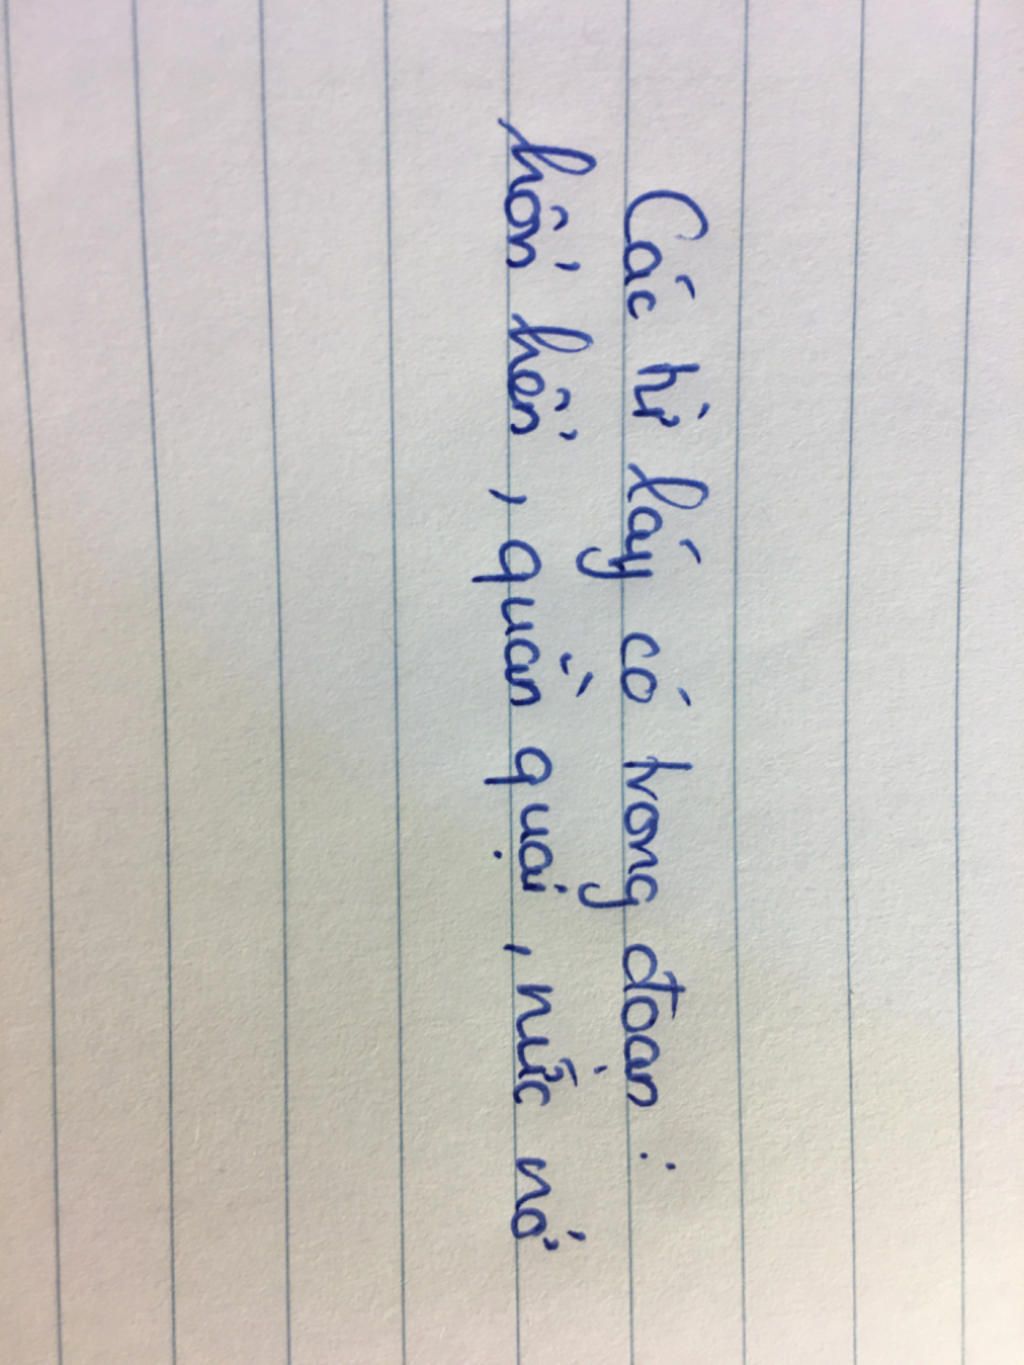 Các từ láy có trong đoạn :
hổn hển , quằn quại , nức nở